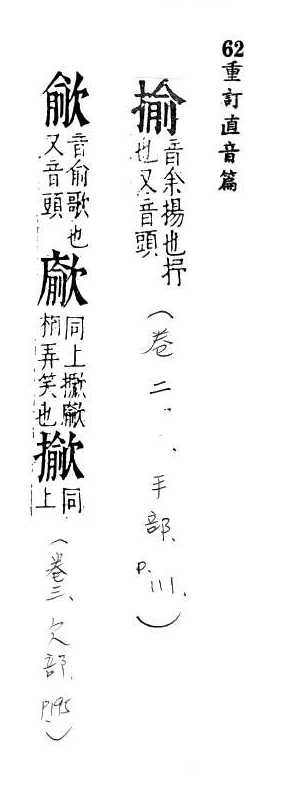 62重訂直音篇
揄音余揚也抒也又音頭(卷二、、手部、P.111.)
歈音俞歌也又音頭同上弄笑也同上(卷三、欠部、P.195)